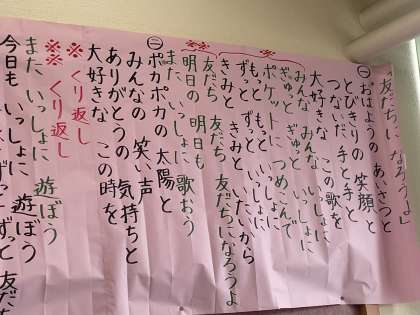 「友だちになろうよ」
一
おはようの あいさつと
とびきりの 笑顔と
つないだ 手と手と
大好きな この歌を
みんな みんな いっしょに
ぎゅっと ぎゅっと
ポケットに つめこんで
もっと もっと いっしょに
ずっと ずっと いっしょに
きみと きみと いたいから
友だち 友だちになろうよ
明日も 明日も
また いっしょに 歌おう
二
ポカポカの 太陽と
みんなの 笑い声
ありがとうの 気持ちと
大好きな この時を
※ くり返し
※※ くり返し
また いっしょに 遊ぼう
今日も いっしょに 遊ぼう
ずっと 友だち